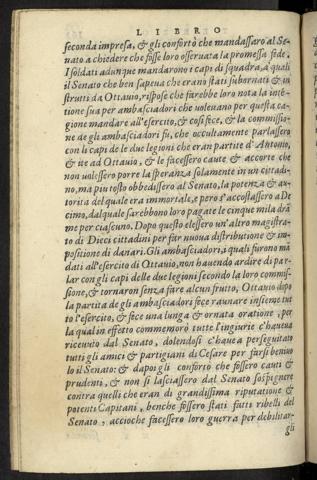 LIBRO
seconda impresa, & gli confortò che mandassaro al Se-
nato a chiedere che fosse loro osseruata la promessa fede.
I soldati adunque mandarono i capi di squadra, a quali
il Senato che ben sapeua che erano stati subornati & in-
strutti da Ottauio, rispose che farebbe loro nota la inten-
tione sua per ambasciadori che uoleuano per questa ca-
gione mandare all'esercito, & così fece, & la commissio-
ne de gli ambasciadori fu, che occultamente parlassero
con li capi de le due legioni che eran partite d'Antonio,
& ite ad Ottauio, & le facessero caute & accorte che
non uolessero porre la speranza solamente in un cittadi-
no, ma piu tosto obbedissero al Senato, la potenza & au-
torita del quale era immortale, & però s'accostassero a De
cimo, dal quale sarebbono loro pagate le cinque mila drā
me per ciascuno. Dopo questo elessero un'altro magistra-
to di Dieci cittadini per far nuoua distributione & im-
positione di danari. Gli ambasciadori, i quali furono mā
dati all'esercito di Ottauio, non hauendo ardire di par-
lar con gli capi delle due legioni secondo la loro commis-
sione, & tornaron senza fare alcun frutto, Ottauio dopo
la partita de gli ambasciadori fece raunare insieme tut
to l'esercito, & fece una lunga & ornata oratione, per
la qual in effetto commemorò tutte l'ingiurie c'haueua
riceuuto dal Senato, dolendosi c'haueua perseguitato
tutti gli amici & partigiani di Cesare per farsi beniuo
lo il Senato: & dapoi gli confortò che fossero cauti &
prudenti, & non si lasciassero dal Senato sospignere
contra quelli che eran di grandissima riputatione &
potenti Capitani, benche fossero stati fatti ribelli del
Senato, accioche facessero loro guerra per debilitar-
gli